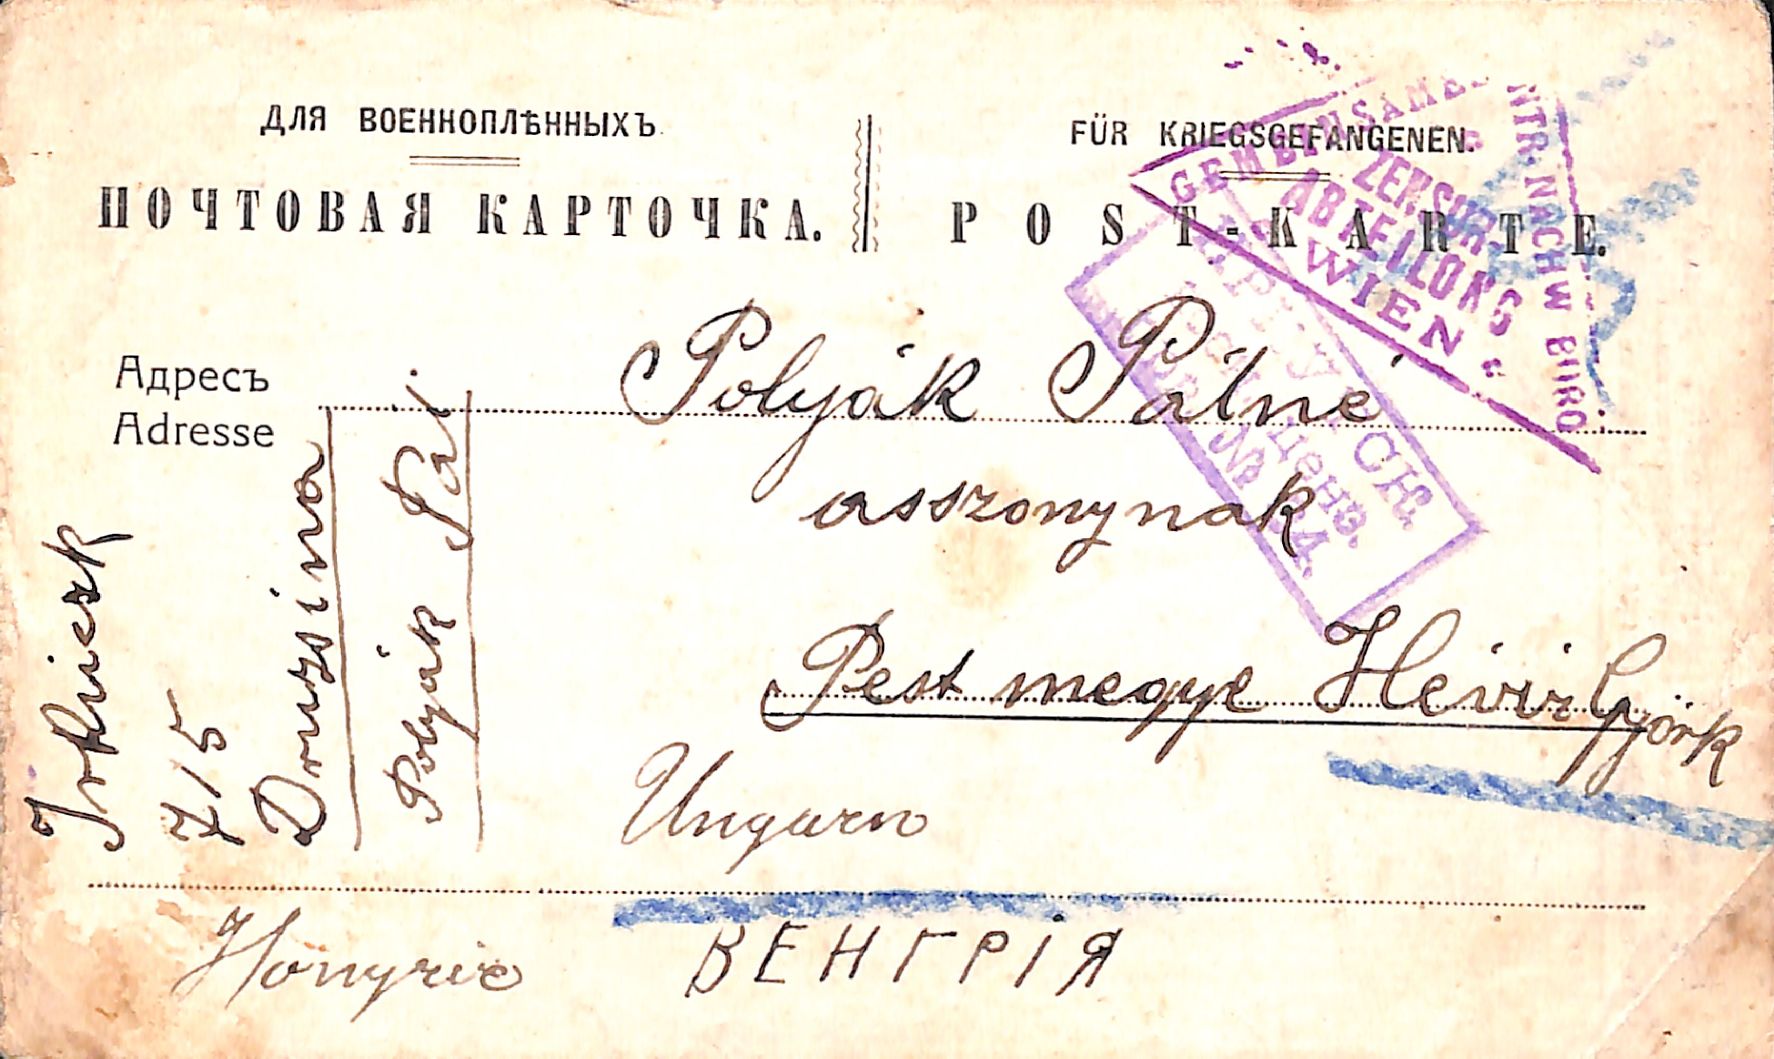 ДЛЯ ВОЕННОПЛѢННЫХЪ
ПОЧТОВАЯ КАРТОЧКА.
FÜR KRIEGSGEFANGENEN.
POST-KARTE.
GEMEINSAME
ZENSUR
ABTEILUNG
WIEN
NTR. NACHW BURO
ИРКУТСК.
ценз.
№ 
Адресъ
Adresse
Polyák Pálné
asszonynak
Pest megye Hévíz Györk
Ungarn
Hongrie ВЕНГРІЯ
Irkuczk
715
Druzsina
Polyák Pál